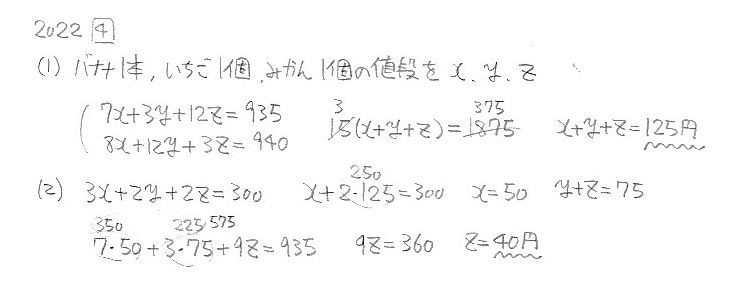 2022 4
(1) バナナ1本, いちご1個, みかん1個の値段を x, y, z
7x+3y+12z=935 3 15(x+y+z)=1875 375 x+y+z=125円
8x+12y+3z=940
(2) 3x+2y+2z=300 x+2・125=300 250 x=50 y+z=75
350 225 575
7・50+3・75+9z=935 9z=360 z=40円